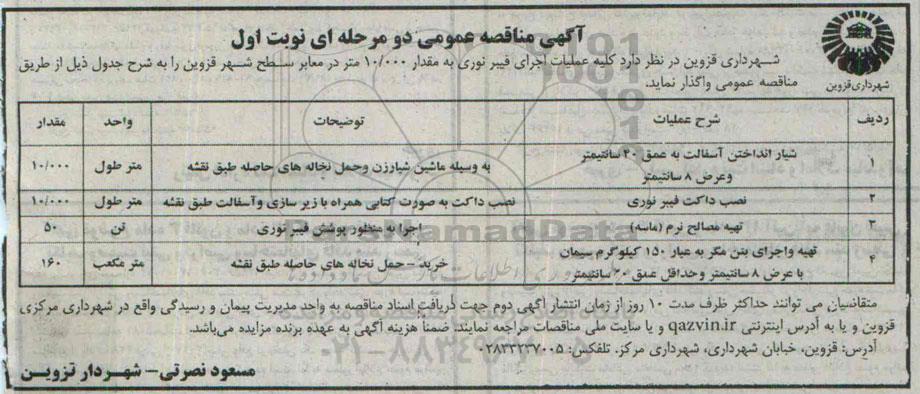 آگهی مناقصه عمومی دو مرحله ای نوبت اول
شهرداری قزوین در نظر دارد کلیه عملیات اجرای فیبر نوری به مقدار ۱۰/۰۰۰ متر در معابر سطح شهر قزوین را به شرح جدول ذیل از طریق
مناقصه عمومی واگذار نماید.
شهرداری قزوین
ردیف شرح عملیات توضیحات واحد مقدار
۱ شیار انداختن آسفالت به عمق ۳۰ سانتیمتر وعرض ۸ سانتیمتر به وسیله ماشین شیارزن وحمل نخاله های حاصله طبق نقشه متر طول ۱۰/۰۰۰
۲ نصب داکت فیبر نوری نصب داکت به صورت کتابی همراه با زیر سازی وآسفالت طبق نقشه متر طول ۱۰/۰۰۰
۳ تهیه مصالح نرم (ماسه) اجرا به منظور پوشش فیبر نوری تن ۵۰
۴ تهیه واجرای بتن مگر به عیار ۱۵۰ کیلوگرم سیمان با عرض ۸ سانتیمتر وحداقل عمق ۲۰ سانتیمتر خرید - حمل نخاله های حاصله طبق نقشه متر مکعب ۱۶۰
متقاضیان می توانند حداکثر ظرف مدت ۱۰ روز از زمان انتشار آگهی دوم جهت دریافت اسناد مناقصه به واحد مدیریت پیمان و رسیدگی واقع در شهرداری مرکزی
قزوین و یا به آدرس اینترنتی qazvin.ir و یا سایت ملی مناقصات مراجعه نمایند. ضمناً هزینه آگهی به عهده برنده مزایده می‌باشد.
آدرس: قزوین، خیابان شهرداری، شهرداری مرکز. تلفکس: ۰۲۸۳۳۲۳۷۰۰۵
مسعود نصرتی - شهردار قزوین
ParsNamadData
۰۲۱-۸۸۳۴۹۶۷۰-۵